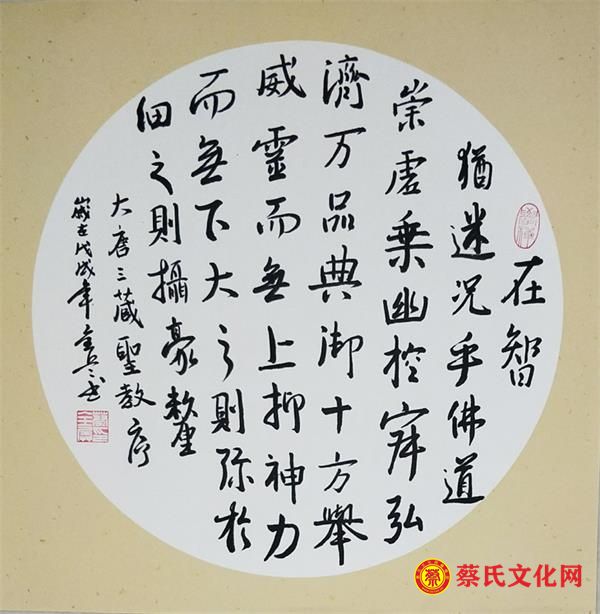 在智
猶迷况乎佛道
崇虚乗幽控寂弘
濟万品典御十方舉
威靈而無上抑神力
而無下大之則弥於
細之則攝豪釐
大唐三藏聖教序
歲在戊戌年书
蔡氏文化网